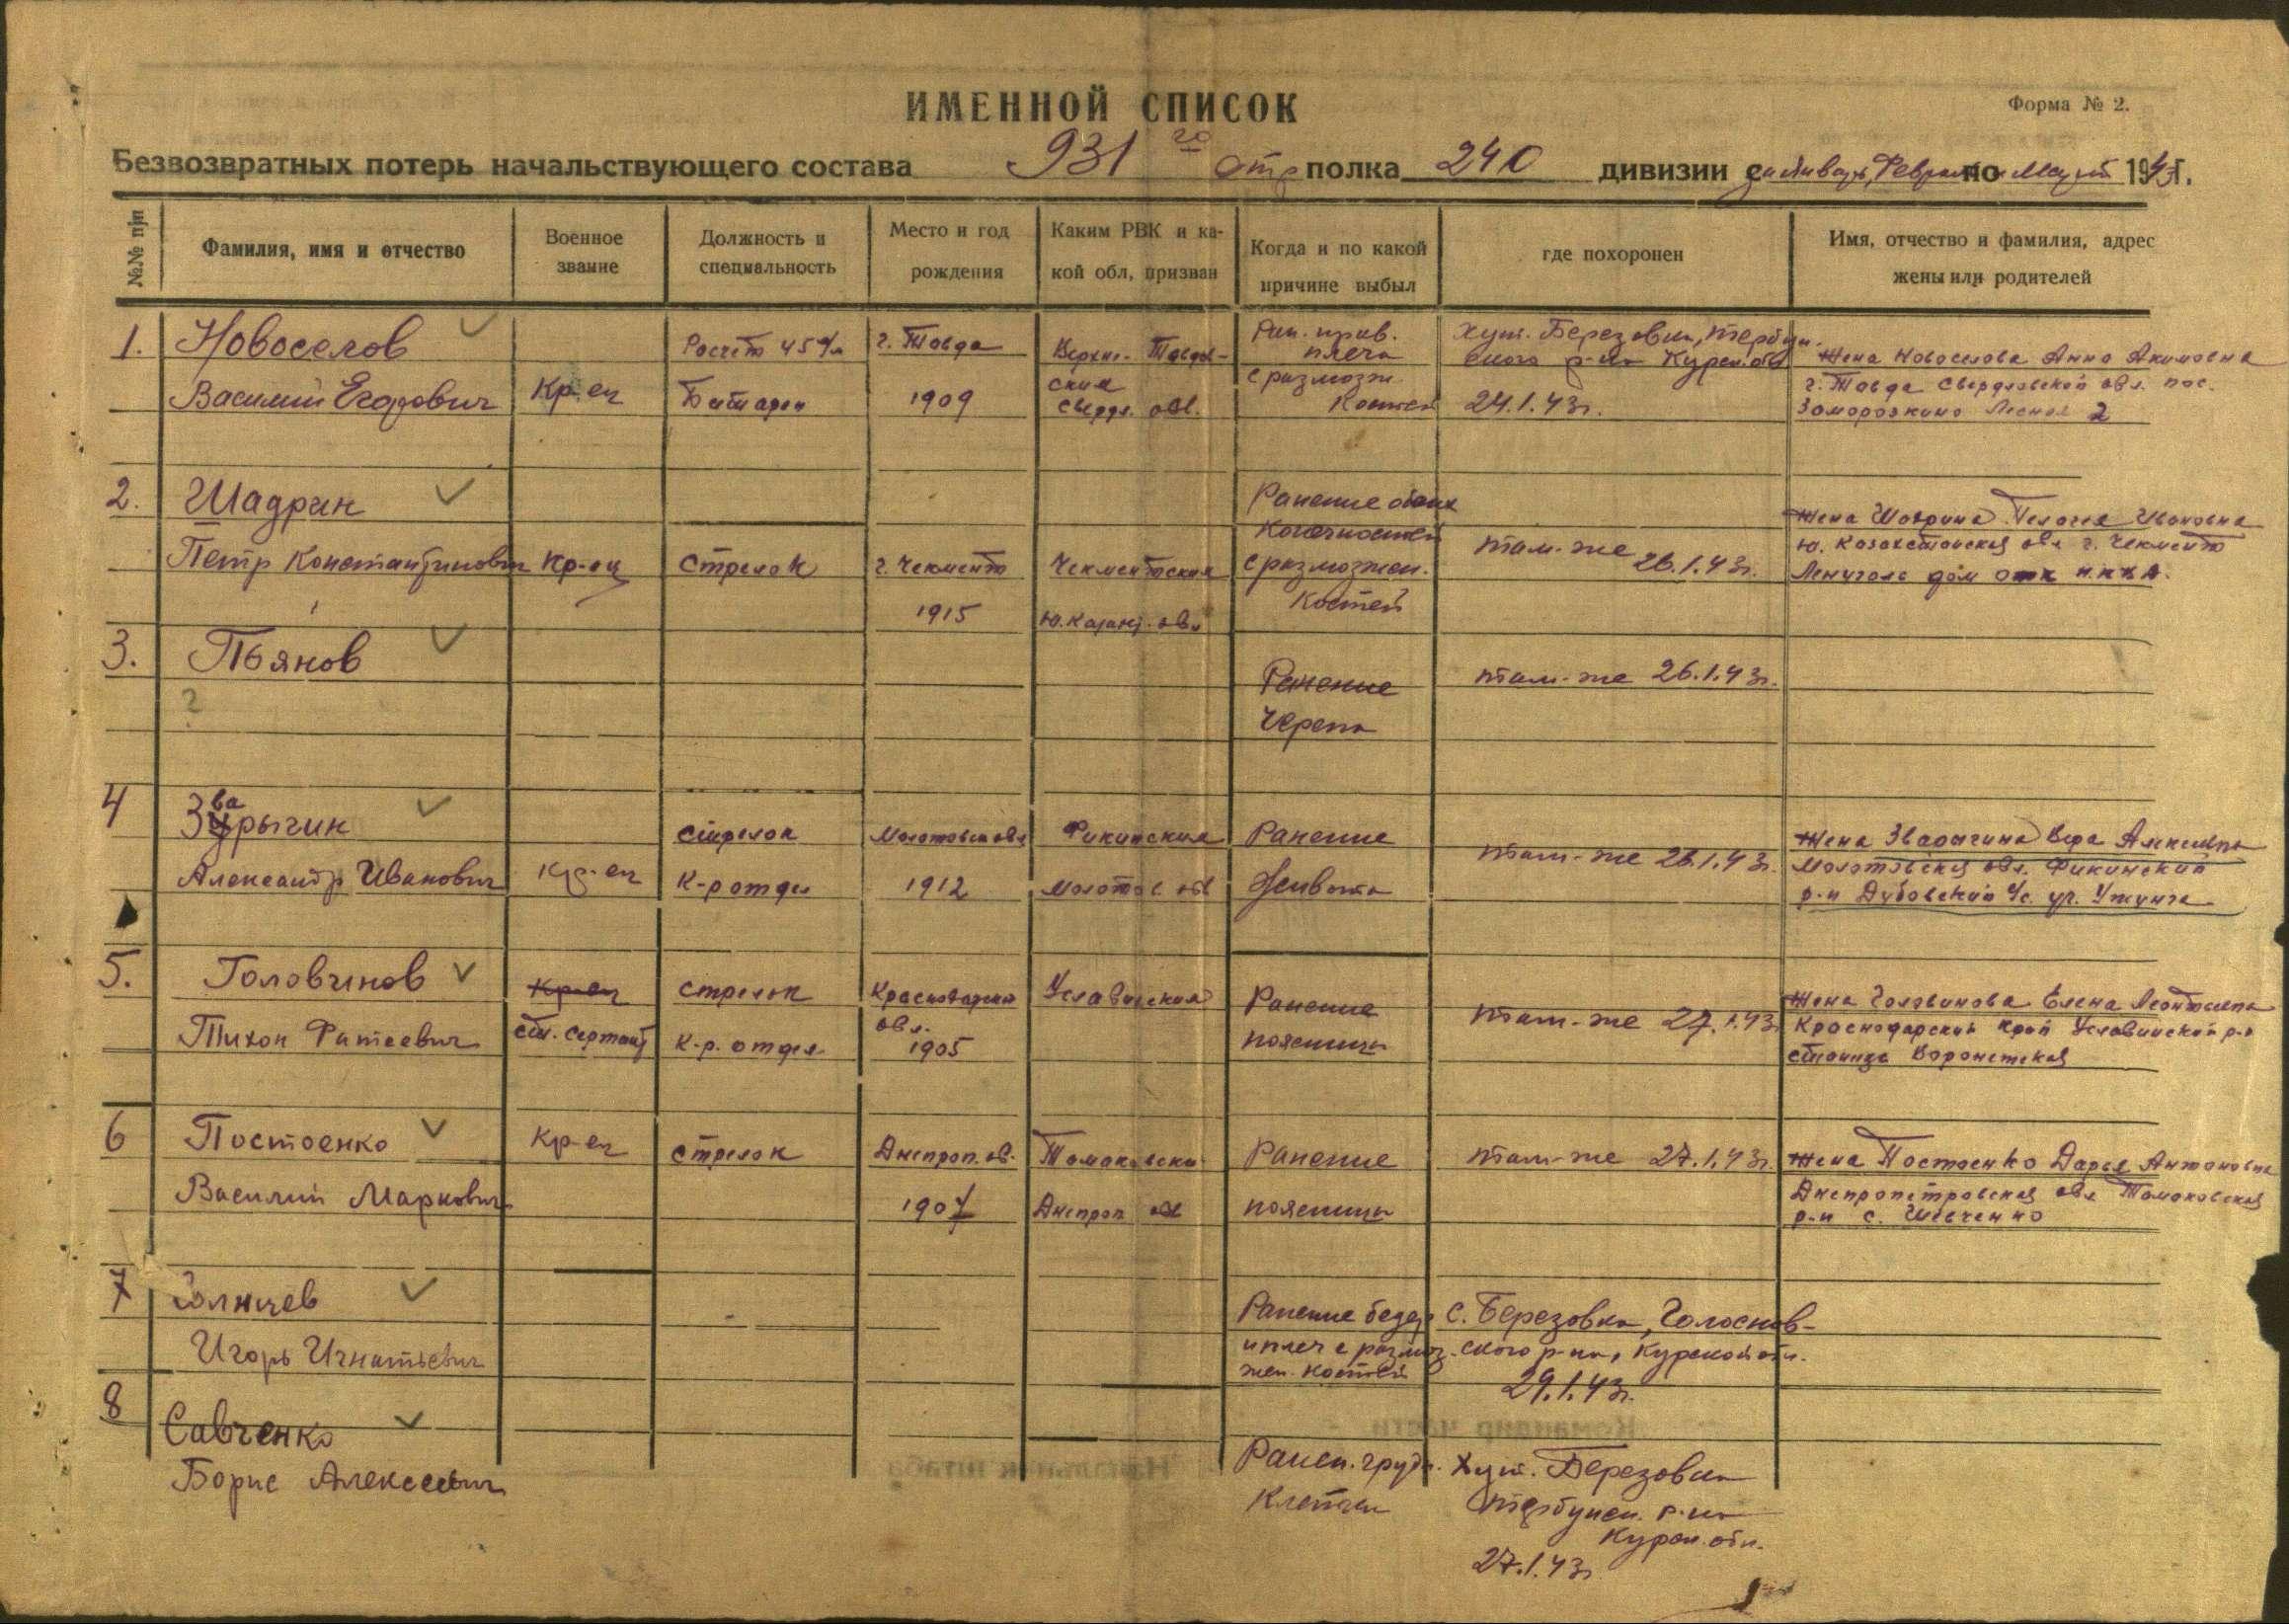 ИМЕННОЙ СПИСОК
Форма № 2.
Безвозвратных потерь начальствующего состава 931 го стр полка 240 дивизии с Февраль по Март 1943 г.
№№ п/п
Фамилия, имя и отчество
Военное звание
Должность и специальность
Место и год рождения
Каким РВК и какой обл, призван
Когда и по какой причине выбыл
где похоронен
Имя, отчество и фамилия, адрес жены или родителей
1. Новоселов
Василий Егорович
Кр-ец
Расчет 45 м/м
Батареи
г. Тавда
1909
Верхне-Тавдин-
ским
Свердл. обл.
Ран. прав.
плеча
с размозж.
Костей
хут. Березовка, Тербун.
ского р-на Курск. обл
24.1.43г.
Жена Новоселова Анна Акимовна
г. Тавда Свердловской обл. пос.
Заморозкино Лесная 2
2. Шадрин
Петр Константинович
Кр-ец
Стрелок
г. Чекмент
1915
Чекментским
Ю. Казахс. обл
Ранение обоих
Конечностей
с размозжен.
Костей
там-же 26.1.43г.
Жена Шадрина Пелагея Ивановна
Ю. Казахстанская обл г. Чекмент
дом
3. Пьянов
?
Ранение
Черепа
там-же 26.1.43г.
4 Зварыгин
Александр Иванович
Кр-ец
Стрелок
К-р отдел
Молотовск обл
1912
Фикинским
Молотов обл
Ранение
Живота
там-же 26.1.43г.
Жена Зварыгина Вера Алексеевна
Молотовская обл. Фикинский
р-н Дубовский с/с. ул.
5. Головчинов
Тихон Фатеевич
Кр-ец
ст. сержант
стрелок
К-р. отдел
Краснодарская
обл.
1905
Уславинским
Ранение
поясницы
там-же 27.1.43г
Жена Головинова Елена Леонтьевна
Краснодарский край Уславинский р-н
станица Воронежская
6 Постоенко
Василий Маркович
Кр-ец
стрелок
Днепроп. об.
1907
Томаковским
Днепроп обл
Ранение
поясницы
там-же 27.1.43г.
Жена Постоенко Дарья Антоновна
Днепропетровская обл Томаковский
р-н с. Шевченко
7 Солнцев
Игорь Игнатьевич
Ранение бедер
и плеч с размоз-
жен. костей
с. Березовка, Голоснов-
ского р-на, Курской обл.
29.1.43г.
8 Савченко
Борис Алексеевич
Ранен. грудн.
Клетки
Хут. Березовка
Тербунск. р-на
Курск. обл.
27.1.43г.